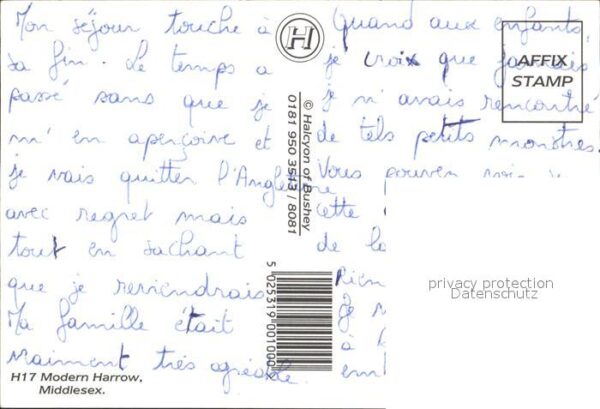 Mon séjour touche à
sa fin. Le temps a
passé sans que je
m'en aperçoive et
je vais quitter l'Angleterre
avec regret mais
tout en sachant
que je reviendrais
Ma famille était
vraiment très agréable.
H17 Modern Harrow,
Middlesex.
H
© Halcyon of Bushey
0181 950 3513 / 8081
5 025319 001000
Quand aux enfants,
je crois que jamais
je n'avais rencontré
de tels petits monstres.
Vous pouvez
cette
de la
Rien
Je
à
AFFIX
STAMP
privacy protection
Datenschutz